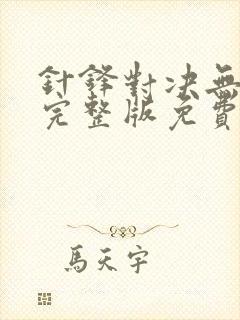 針鋒對决無
完整版免費
馬天宇